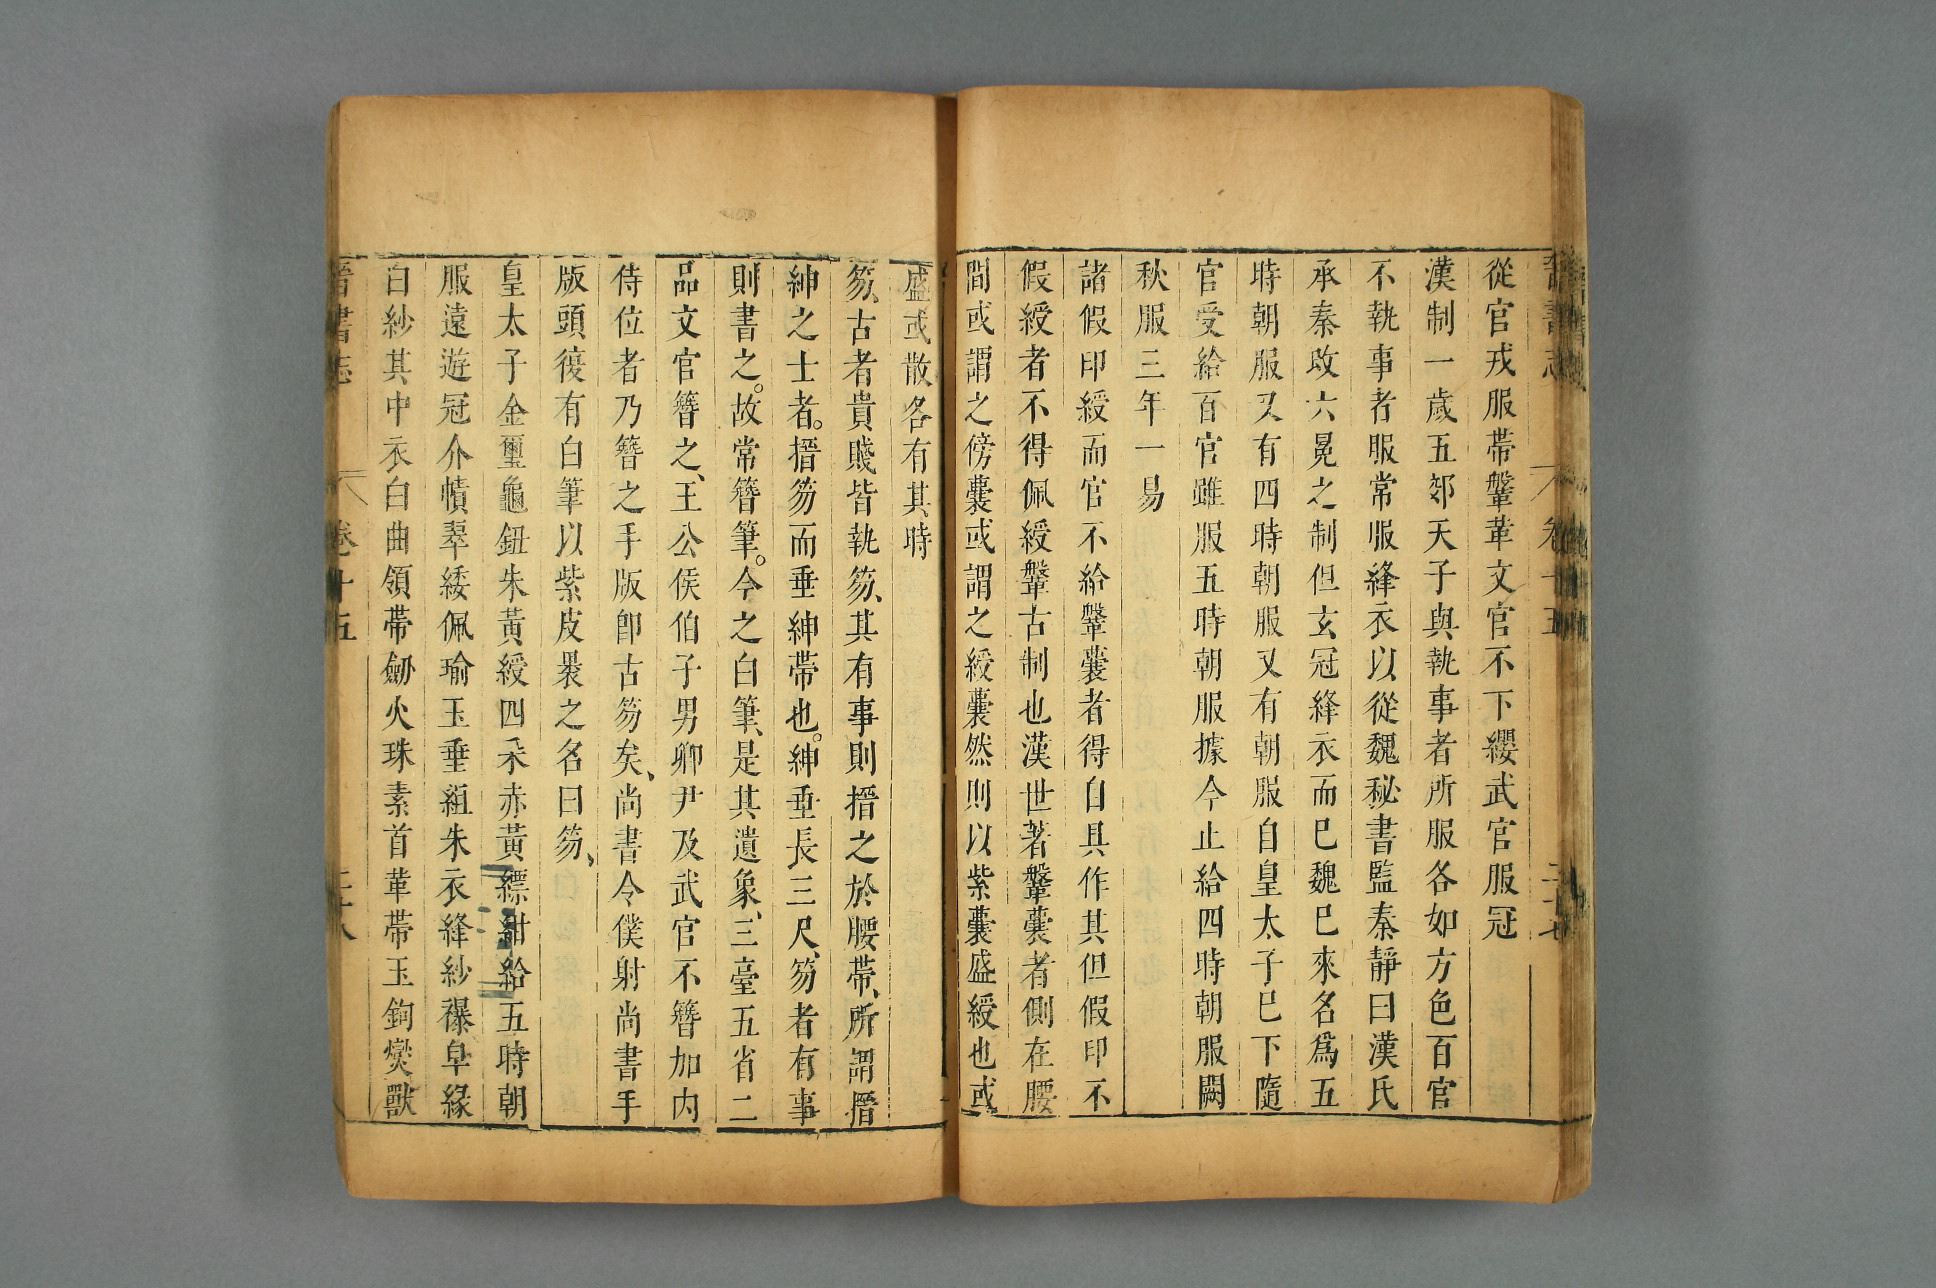 晉書志 卷十五 二十七
從官戎服帶鞶革文官不下纓武官服冠
漢制一歲五郊天子與執事者所服各如方色百官
不執事者服常服絳衣以從魏秘書監秦靜曰漢氏
承秦改六冕之制但玄冠絳衣而已魏已來名爲五
時朝服又有四時朝服又有朝服自皇太子已下隨
官受給百官雖服五時朝服據今止給四時朝服闕
秋服三年一易
諸假印綬而官不給鞶囊者得自具作其但假印不
假綬者不得佩綬鞶古制也漢世著鞶囊者側在腰
間或謂之傍囊或謂之綬囊然則以紫囊盛綬也或
盛或散各有其時
笏、古者貴賤皆執笏、其有事則搢之於腰帶、所謂搢
紳之士者。搢笏而垂紳帶也。紳垂長三尺、笏者有事
則書之。故常簪筆。今之白筆、是其遺象、三臺五省二
品文官簪之、王公侯伯子男卿尹及武官不簪加內
侍位者乃簪之手版卽古笏矣、尚書令僕射尚書手
版頭復有白筆以紫皮裹之名曰笏、
皇太子金璽龜鈕朱黃綬四采赤黃縹紺給五時朝
服遠遊冠介幘翠緌佩瑜玉垂組朱衣絳紗襮皁緣
白紗其中衣白曲領帶劒火珠素首革帶玉鉤爕獸
晉書志 卷十五 二十八